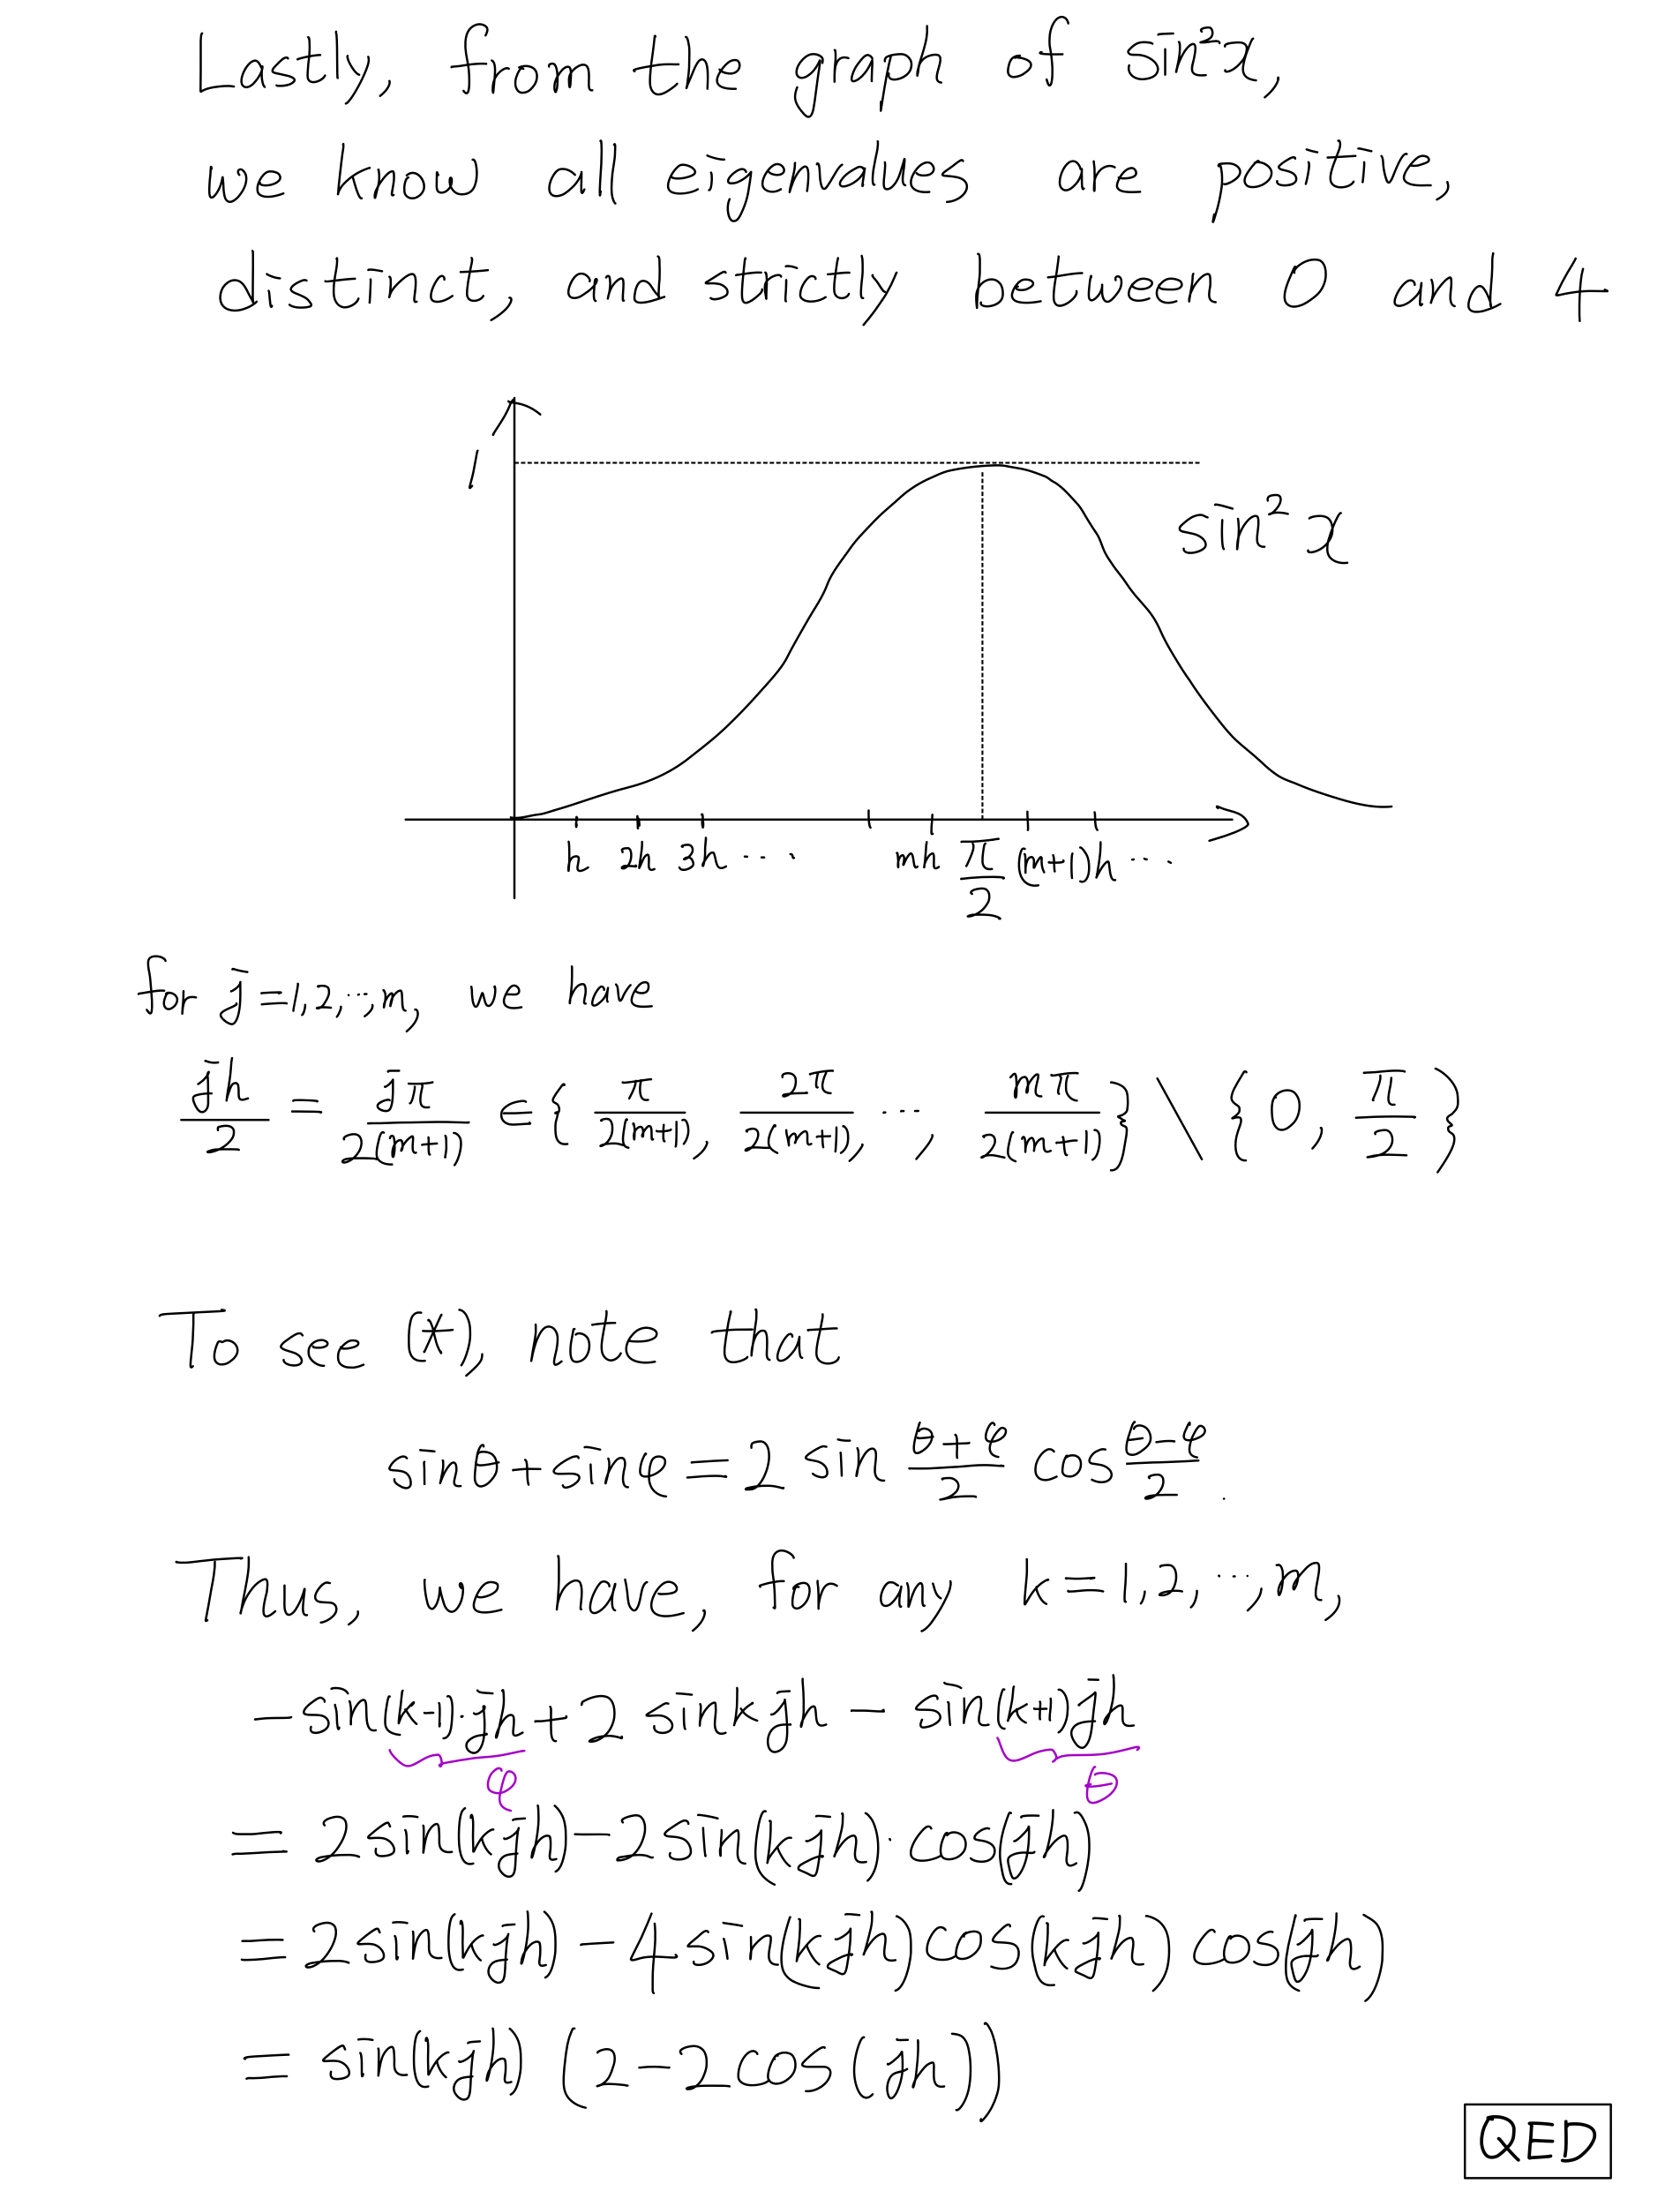 Lastly, from the graph of sin²x,
we know all eigenvalues are positive,
distinct, and strictly between 0 and 4
1
sin² x
h 2h 3h ··· mh π/2 (m+1)h ···
for j=1,2,···,m, we have
jh/2 = jπ/2(m+1) ∈ { π/2(m+1), 2π/2(m+1), ···, mπ/2(m+1) } \ { 0, π/2 }
To see (*), note that
sinθ + sinφ = 2 sin θ+φ/2 cos θ-φ/2 .
Thus, we have, for any k=1,2,···,m,
-sin(k-1)·jh + 2 sinkjh - sin(k+1)jh
φ θ
= 2sin(kjh) - 2sin(kjh)·cos(jh)
= 2sin(kjh) - 4sin(kjh)cos(kjh) cos(jh)
= sin(kjh) (2-2cos(jh))
QED